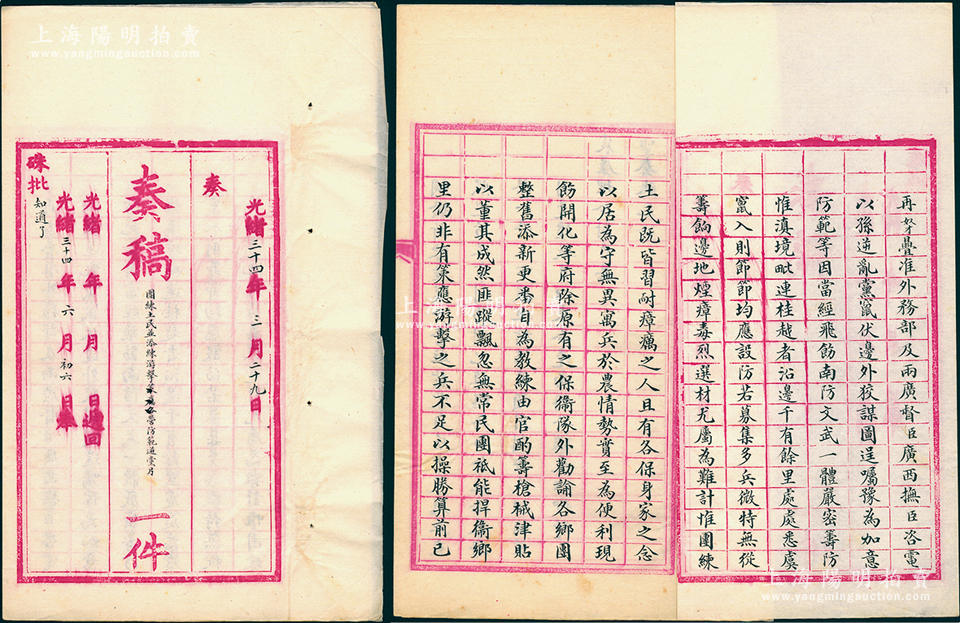 上海陽明拍賣
www.yangmingauction.com
光緒三十四年三月二十九日
奏
奏稿
團練土民並添練游擊 各營防範逆黨片
一件
光緒 年 月 日 回
光緒三十四年六月初六日奉
硃批
知道了
再 疊准外務部及兩廣督臣廣西撫臣咨電
以孫逆亂黨竄伏邊外狡謀圖逞囑豫為加意
防範等因當經飛飭南防文武一體嚴密籌防
惟滇境毗連桂越者沿邊千有餘里處處悉虞
竄入則節節均應設防若募集多兵微特無從
籌餉邊地煙瘴毒烈選材尤屬為難計惟團練
土民既皆習耐瘴癘之人且有各保身家之念
以居為守無異寓兵於農情勢實至為便利現
飭開化等府除原有之保衞隊外勸諭各鄉團
整舊添新更番自為教練由官酌籌槍械津貼
以董其成然匪蹤飄忽無常民團衹能捍衞鄉
里仍非有策應游擊之兵不足以操勝算前已
上海陽明拍賣
www.yangmingauction.com
上海陽明拍賣
www.yangmingauction.com